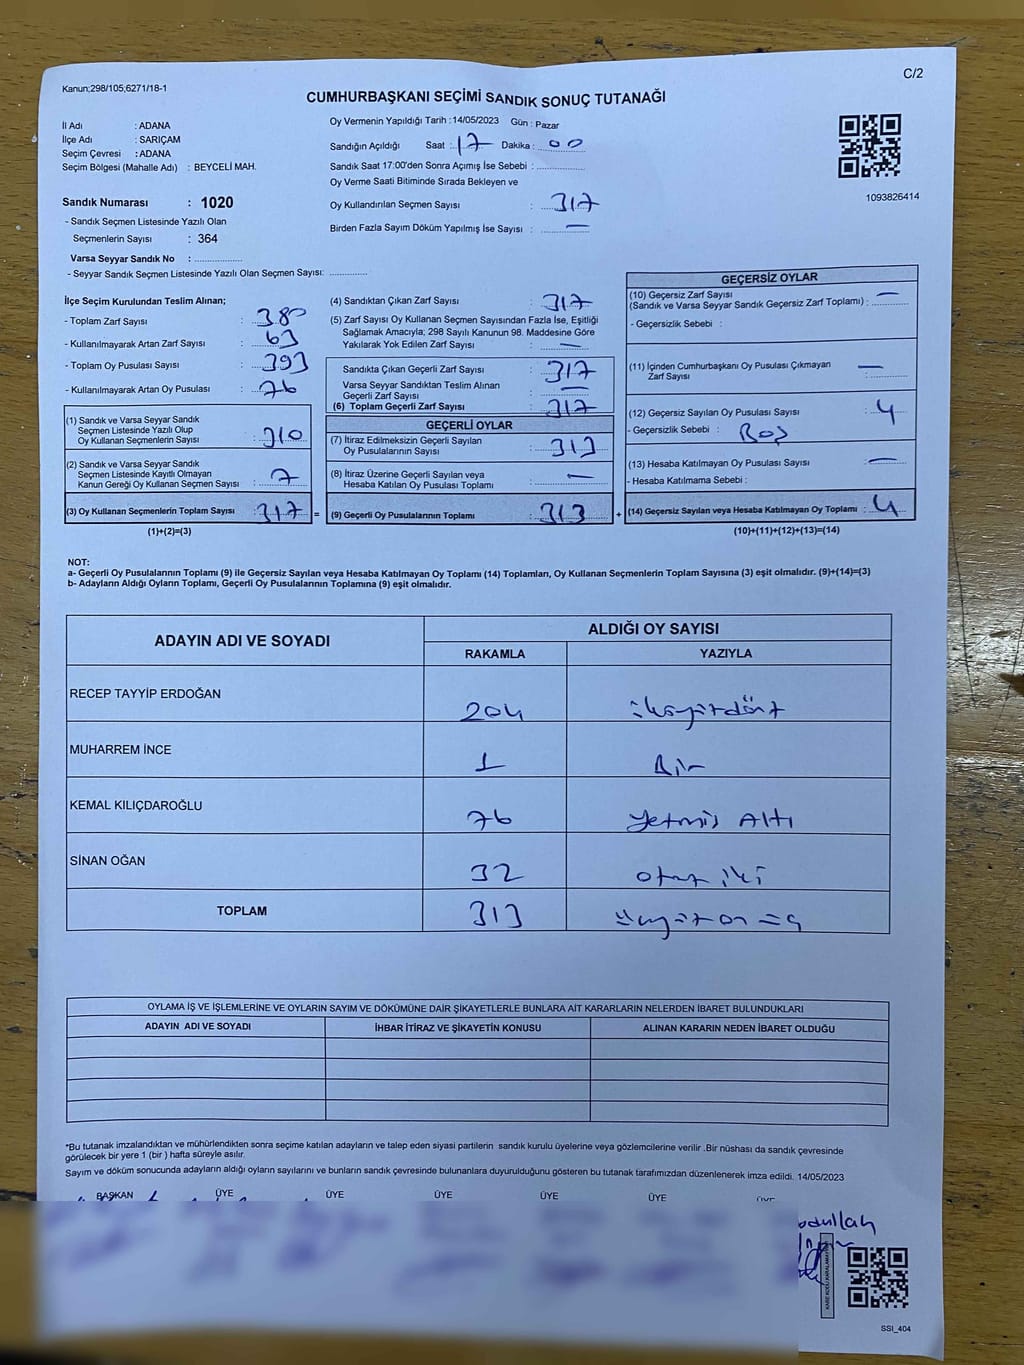 C/2
Kanun;298/105;6271/18-1
CUMHURBAŞKANI SEÇİMİ SANDIK SONUÇ TUTANAĞI
İl Adı : ADANA
İlçe Adı : SARIÇAM
Seçim Çevresi : ADANA
Seçim Bölgesi (Mahalle Adı) : BEYCELİ MAH.
Sandık Numarası : 1020
- Sandık Seçmen Listesinde Yazılı Olan
Seçmenlerin Sayısı : 364
Varsa Seyyar Sandık No :
- Seyyar Sandık Seçmen Listesinde Yazılı Olan Seçmen Sayısı:
Oy Vermenin Yapıldığı Tarih :14/05/2023 Gün : Pazar
Sandığın Açıldığı Saat : 17 Dakika : 00
Sandık Saat 17:00'den Sonra Açımış İse Sebebi :
Oy Verme Saati Bitiminde Sırada Bekleyen ve
Oy Kullandırılan Seçmen Sayısı : 317
Birden Fazla Sayım Döküm Yapılmış İse Sayısı : —
1093826414
İlçe Seçim Kurulundan Teslim Alınan;
- Toplam Zarf Sayısı : 380
- Kullanılmayarak Artan Zarf Sayısı : 63
- Toplam Oy Pusulası Sayısı : 393
- Kullanılmayarak Artan Oy Pusulası : 76
(1) Sandık ve Varsa Seyyar Sandık
Seçmen Listesinde Yazılı Olup
Oy Kullanan Seçmenlerin Sayısı : 310
(2) Sandık ve Varsa Seyyar Sandık
Seçmen Listesinde Kayıtlı Olmayan
Kanun Gereği Oy Kullanan Seçmen Sayısı : 7
(3) Oy Kullanan Seçmenlerin Toplam Sayısı : 317 =
(1)+(2)=(3)
(4) Sandıktan Çıkan Zarf Sayısı : 317
(5) Zarf Sayısı Oy Kullanan Seçmen Sayısından Fazla İse, Eşitliği
Sağlamak Amacıyla; 298 Sayılı Kanunun 98. Maddesine Göre
Yakılarak Yok Edilen Zarf Sayısı : —
Sandıkta Çıkan Geçerli Zarf Sayısı : 317
Varsa Seyyar Sandıktan Teslim Alınan
Geçerli Zarf Sayısı : —
(6) Toplam Geçerli Zarf Sayısı : 317
GEÇERLİ OYLAR
(7) İtiraz Edilmeksizin Geçerli Sayılan
Oy Pusulalarının Sayısı : 313
(8) İtiraz Üzerine Geçerli Sayılan veya
Hesaba Katılan Oy Pusulası Toplamı : —
(9) Geçerli Oy Pusulalarının Toplamı : 313 +
GEÇERSİZ OYLAR
(10) Geçersiz Zarf Sayısı
(Sandık ve Varsa Seyyar Sandık Geçersiz Zarf Toplamı) : —
- Geçersizlik Sebebi :
(11) İçinden Cumhurbaşkanı Oy Pusulası Çıkmayan
Zarf Sayısı : —
(12) Geçersiz Sayılan Oy Pusulası Sayısı : 4
- Geçersizlik Sebebi : Boş
(13) Hesaba Katılmayan Oy Pusulası Sayısı : —
- Hesaba Katılmama Sebebi :
(14) Geçersiz Sayılan veya Hesaba Katılmayan Oy Toplamı : 4
(10)+(11)+(12)+(13)=(14)
NOT:
a- Geçerli Oy Pusulalarının Toplamı (9) ile Geçersiz Sayılan veya Hesaba Katılmayan Oy Toplamı (14) Toplamları, Oy Kullanan Seçmenlerin Toplam Sayısına (3) eşit olmalıdır. (9)+(14)=(3)
b- Adayların Aldığı Oyların Toplamı, Geçerli Oy Pusulalarının Toplamına (9) eşit olmalıdır.
ADAYIN ADI VE SOYADI ALDIĞI OY SAYISI
RAKAMLA YAZIYLA
RECEP TAYYİP ERDOĞAN 204 ikiyüzdört
MUHARREM İNCE 1 Bir
KEMAL KILIÇDAROĞLU 76 Yetmiş Altı
SİNAN OĞAN 32 otuz iki
TOPLAM 313 üçyüz on üç
OYLAMA İŞ VE İŞLEMLERİNE VE OYLARIN SAYIM VE DÖKÜMÜNE DAİR ŞİKAYETLERLE BUNLARA AİT KARARLARIN NELERDEN İBARET BULUNDUKLARI
ADAYIN ADI VE SOYADI İHBAR İTİRAZ VE ŞİKAYETİN KONUSU ALINAN KARARIN NEDEN İBARET OLDUĞU
*Bu tutanak imzalandıktan ve mühürlendikten sonra seçime katılan adayların ve talep eden siyasi partilerin sandık kurulu üyelerine veya gözlemcilerine verilir .Bir nüshası da sandık çevresinde
görülecek bir yere 1 (bir ) hafta süreyle asılır.
Sayım ve döküm sonucunda adayların aldığı oyların sayılarını ve bunların sandık çevresinde bulunanlara duyurulduğunu gösteren bu tutanak tarafımızdan düzenlenerek imza edildi. 14/05/2023
BAŞKAN ÜYE ÜYE ÜYE ÜYE ÜYE ÜYE
SSI_404